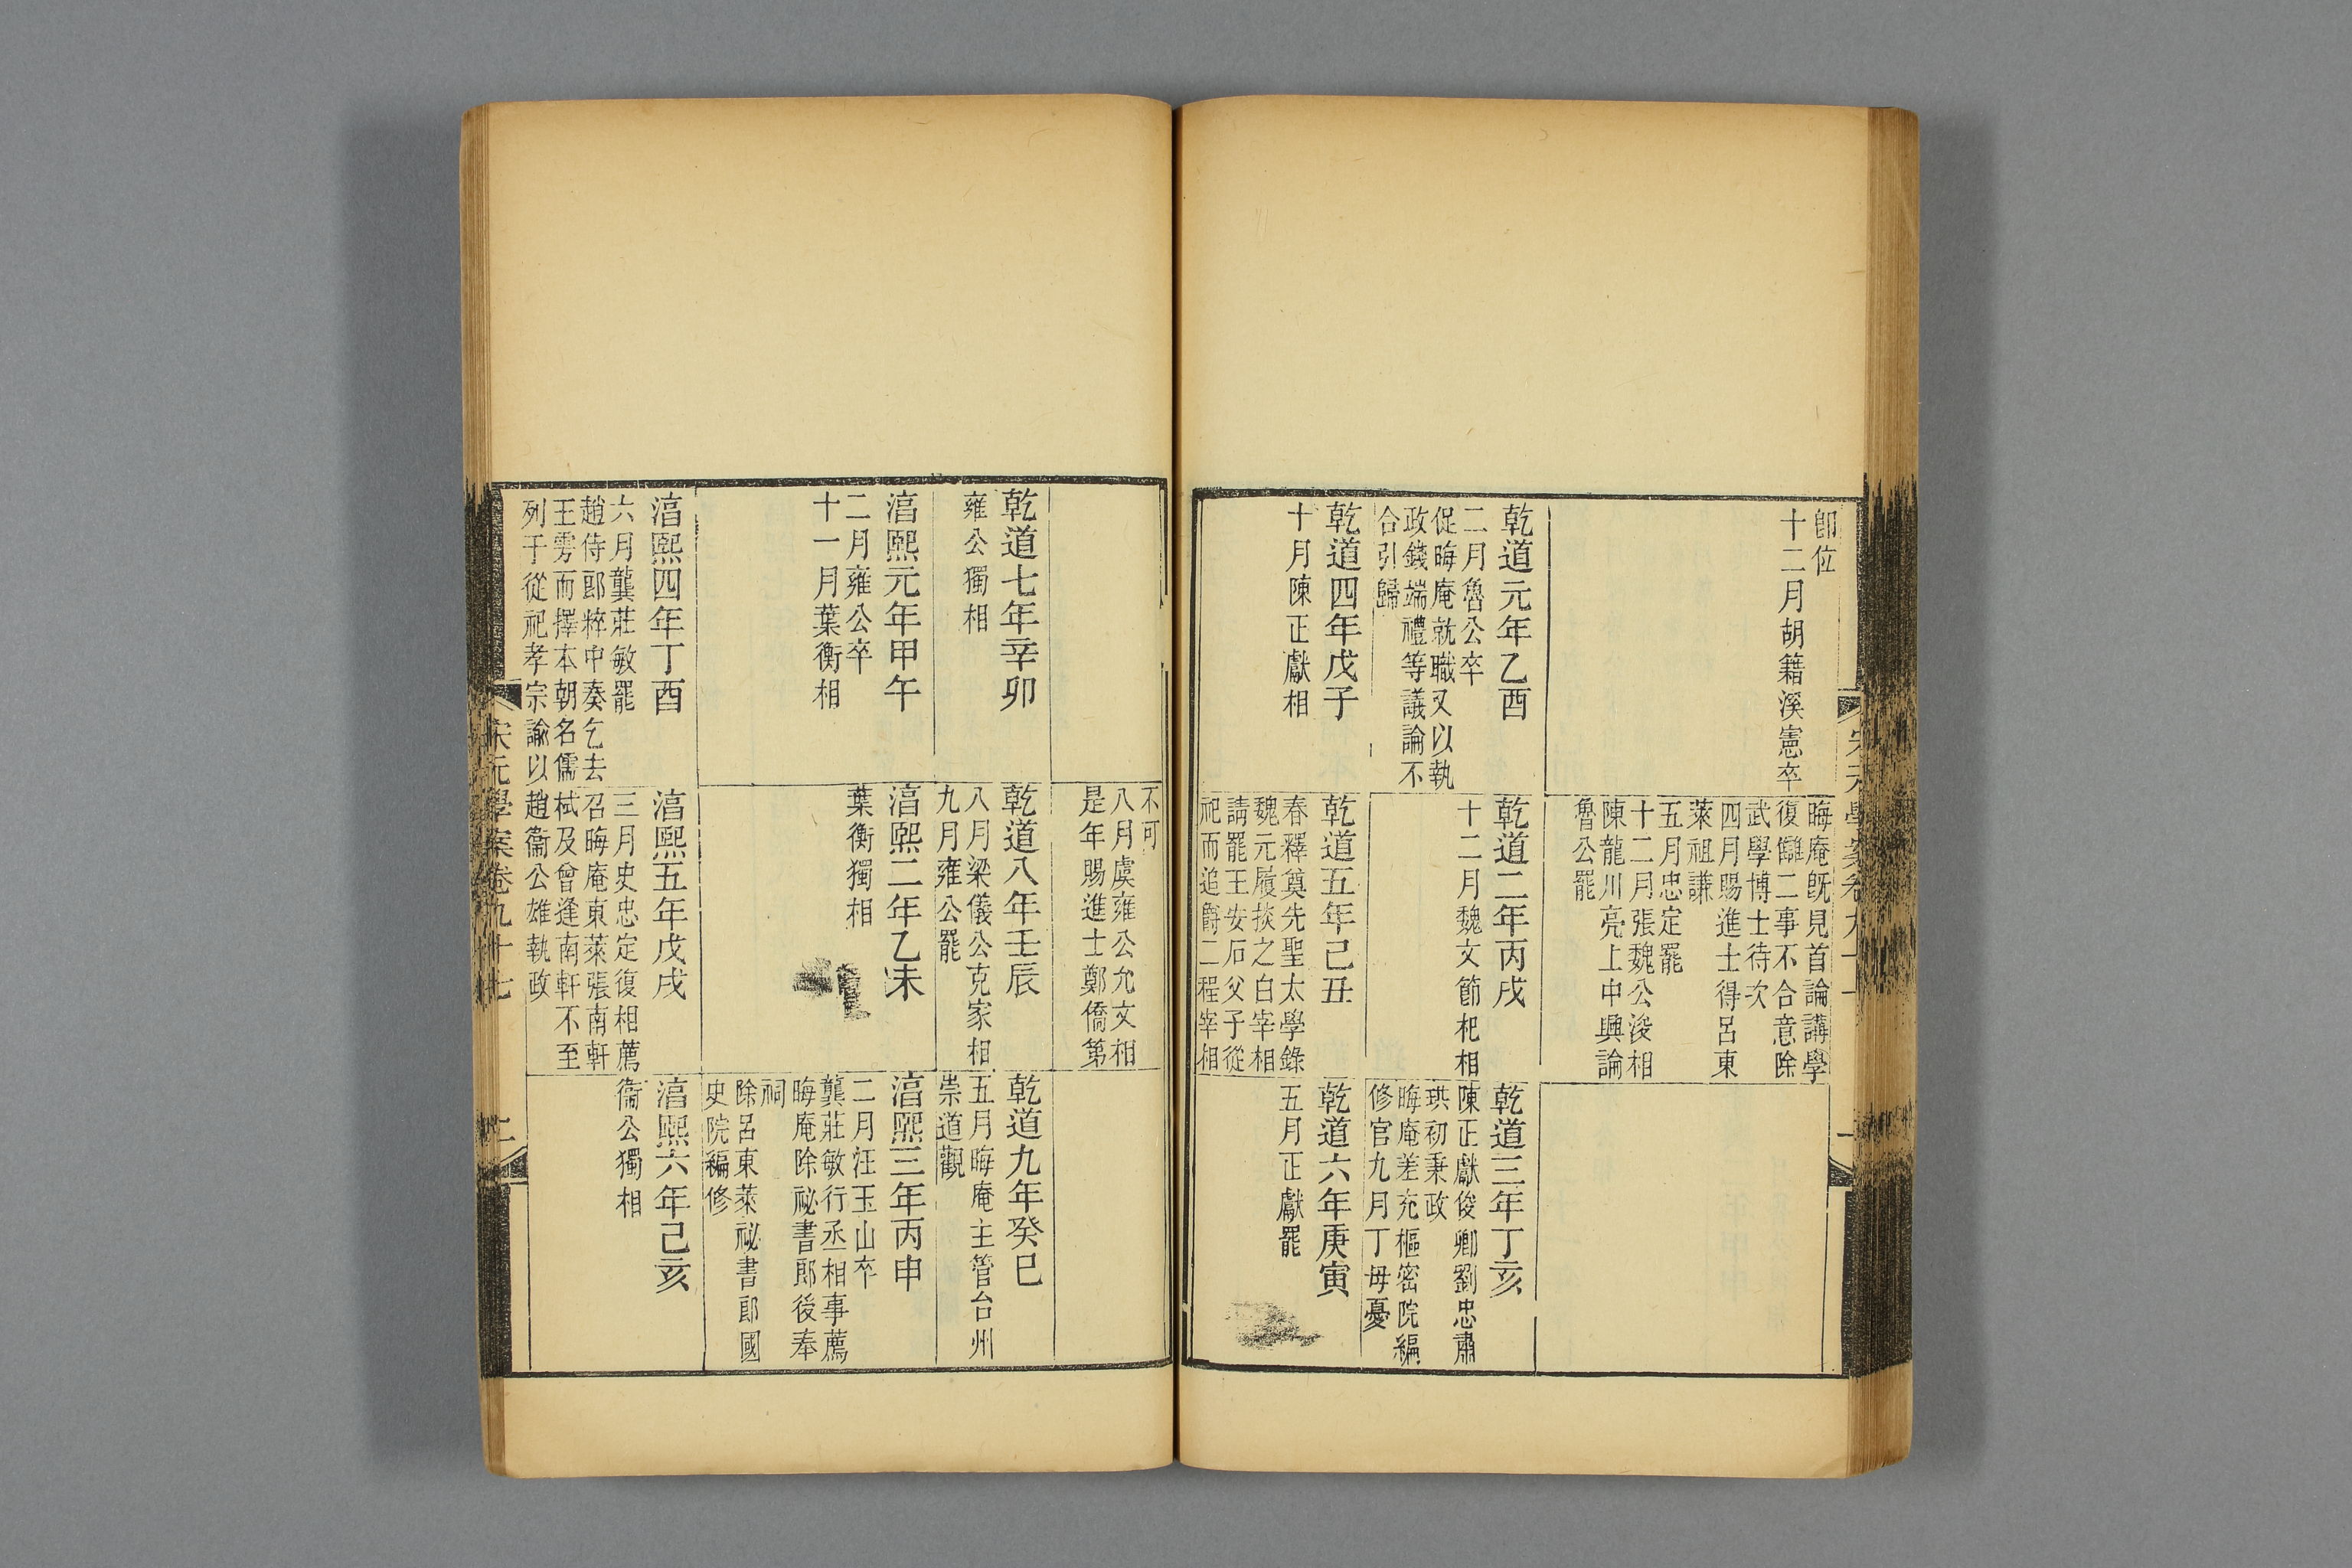 卽位
十二月胡籍溪憲卒
晦庵旣見首論講學
復讎二事不合意除
武學博士待次
四月賜進士得呂東
萊祖謙
五月忠定罷
十二月張魏公浚相
陳龍川亮上中興論
魯公罷
乾道元年乙酉
二月魯公卒
促晦庵就職又以執
政錢端禮等議論不
合引歸
乾道二年丙戌
十二月魏文節杞相
乾道三年丁亥
陳正獻俊卿劉忠肅
珙初秉政
晦庵差充樞密院編
修官九月丁母憂
乾道四年戊子
十月陳正獻相
乾道五年己丑
春釋奠先聖太學錄
魏元履掞之白宰相
請罷王安石父子從
祀而追爵二程宰相
乾道六年庚寅
五月正獻罷
不可
八月虞雍公允文相
是年賜進士鄭僑第
乾道七年辛卯
雍公獨相
乾道八年壬辰
八月梁儀公克家相
九月雍公罷
乾道九年癸巳
五月晦庵主管台州
崇道觀
湻熙元年甲午
二月雍公卒
十一月葉衡相
湻熙二年乙未
葉衡獨相
湻熙三年丙申
二月汪玉山卒
龔莊敏行丞相事薦
晦庵除祕書郎後奉
祠
除呂東萊祕書郎國
史院編修
湻熙四年丁酉
六月龔莊敏罷
趙侍郎粹中奏乞去
王雱而擇本朝名儒
列于從祀孝宗諭以
湻熙五年戊戌
三月史忠定復相薦
召晦庵東萊張南軒
栻及曾逢南軒不至
趙衞公雄執政
湻熙六年己亥
衞公獨相
宋元學案卷九十七
二